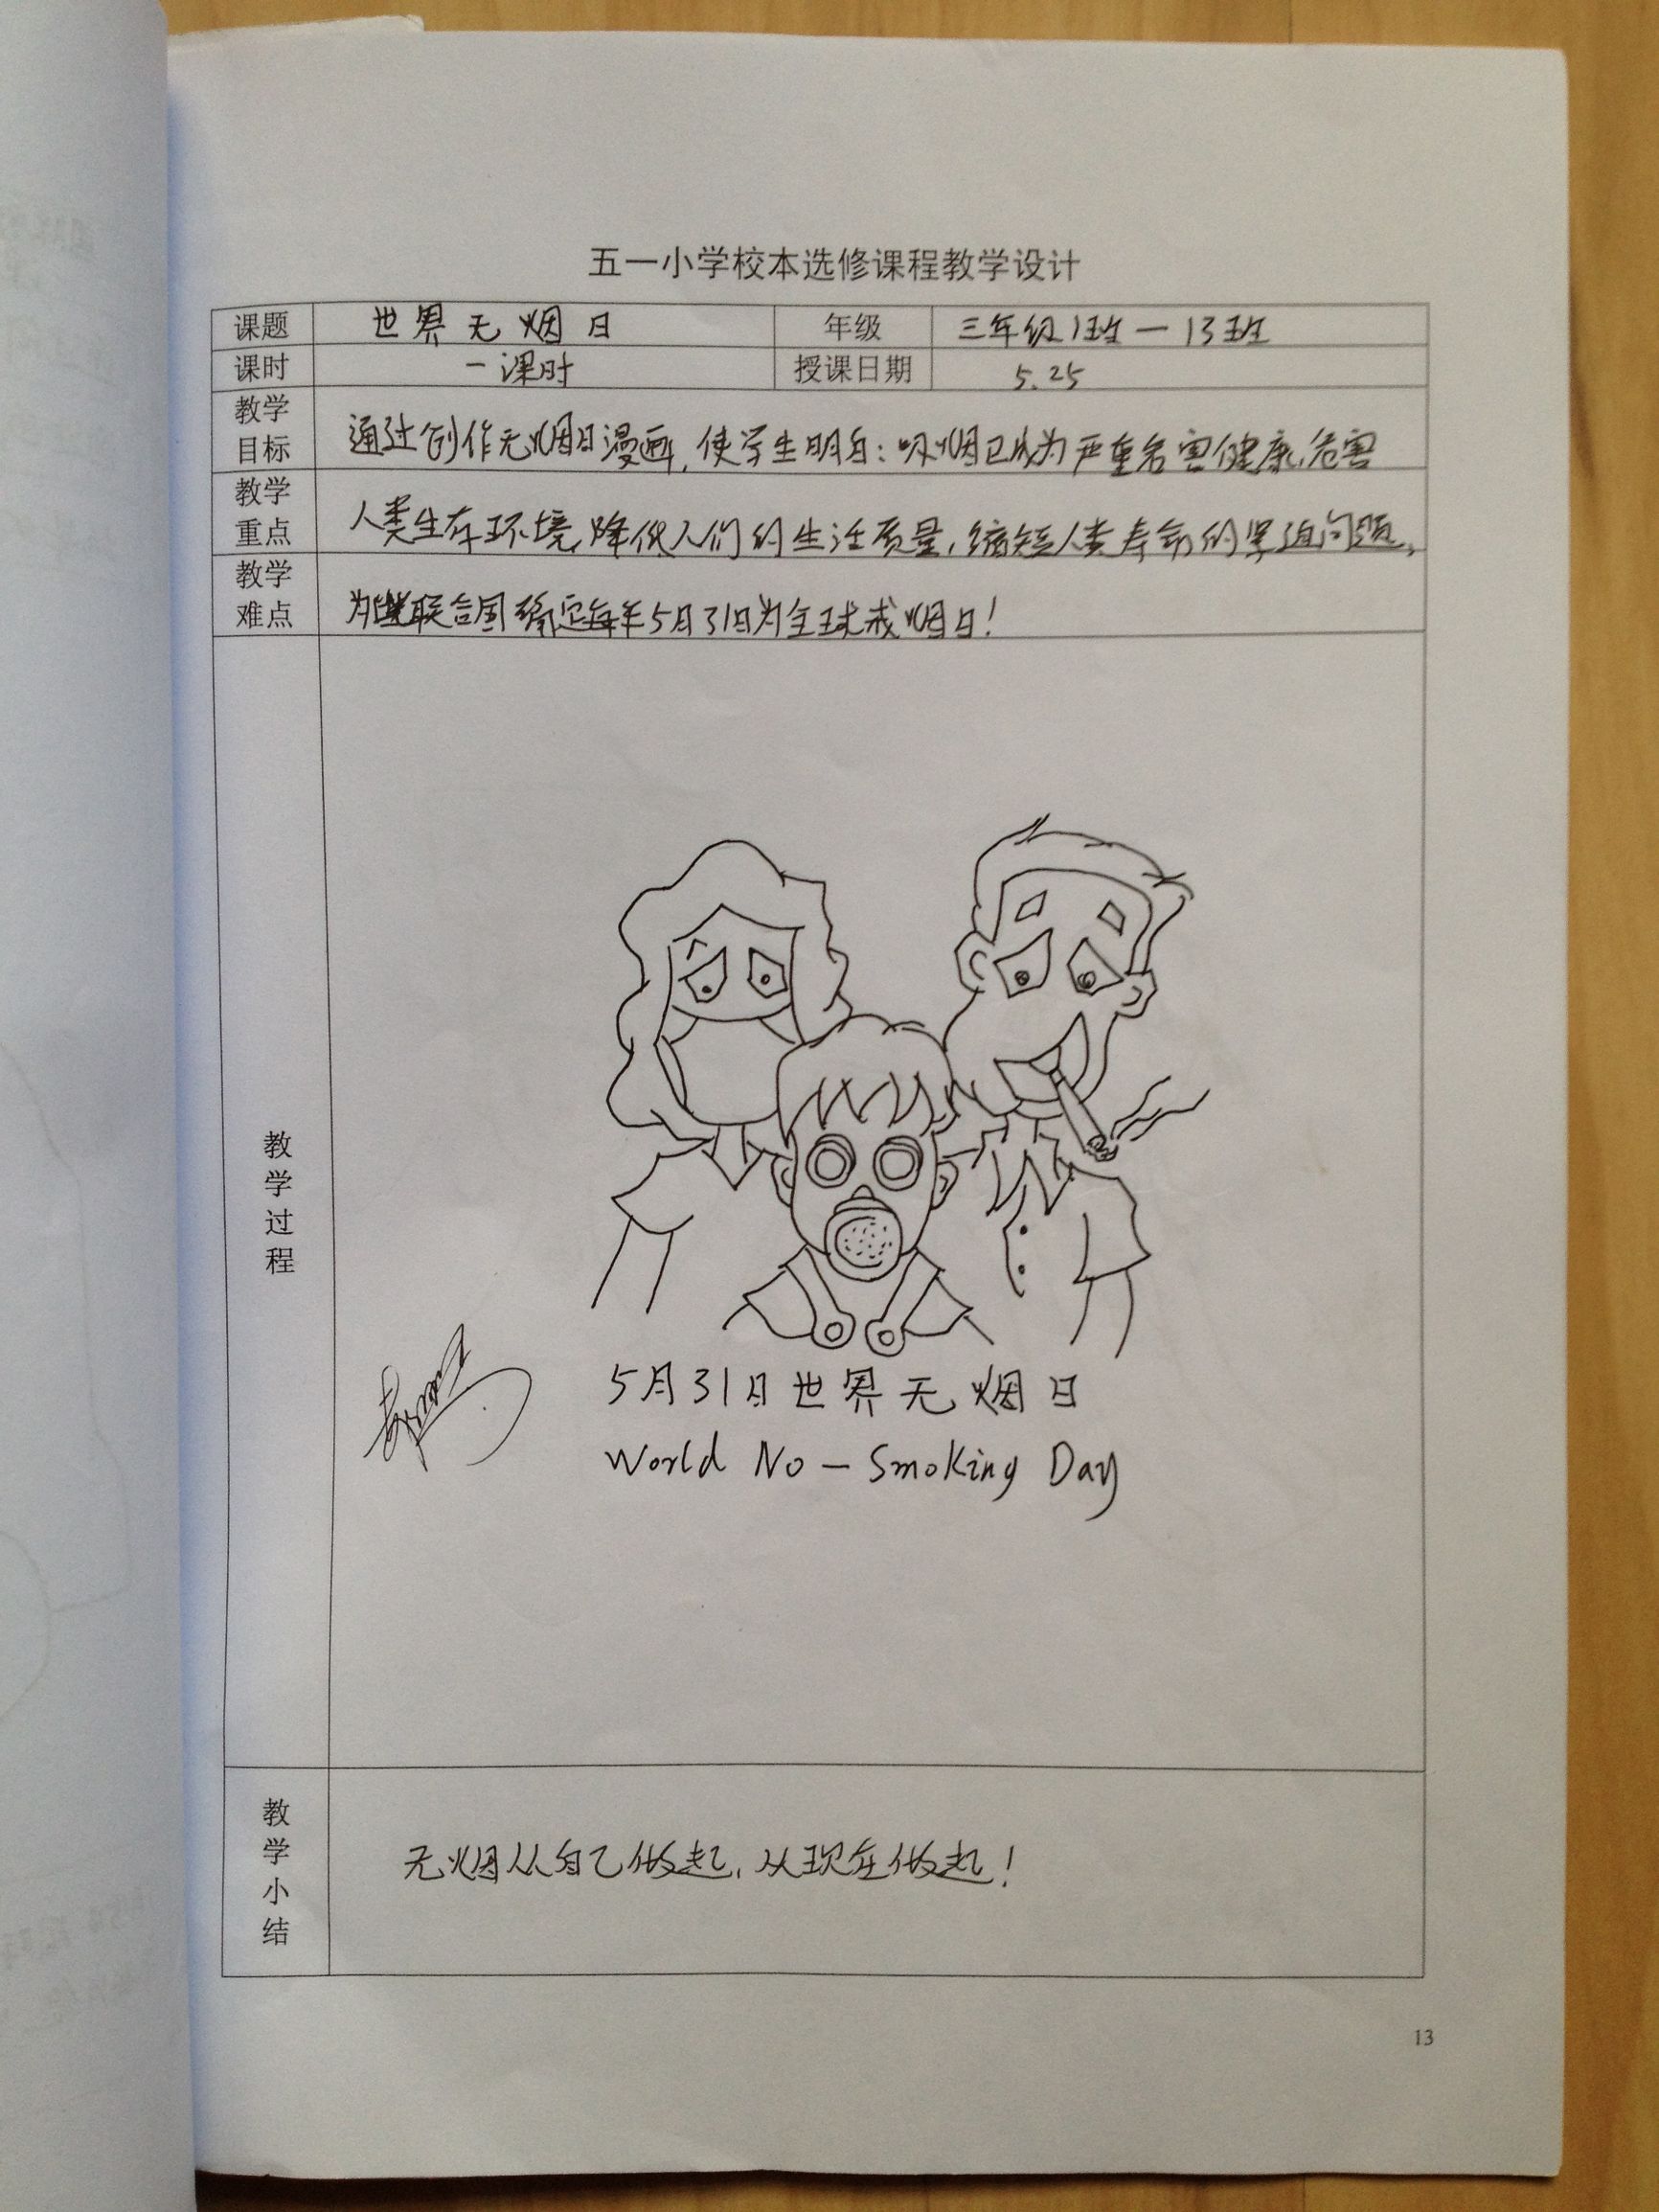 五一小学校本选修课程教学设计
课题 世界无烟日 年级 三年级1班—13班
课时 一课时 授课日期 5.25
教学目标 通过创作无烟日漫画,使学生明白:吸烟已成为严重危害健康,危害
教学重点 人类生存环境,降低人们的生活质量,缩短人类寿命的紧迫问题,
教学难点 为此联合国确定每年5月31日为全球戒烟日!
教学过程
5月31日世界无烟日
World No-Smoking Day
教学小结 无烟从自己做起,从现在做起!
13